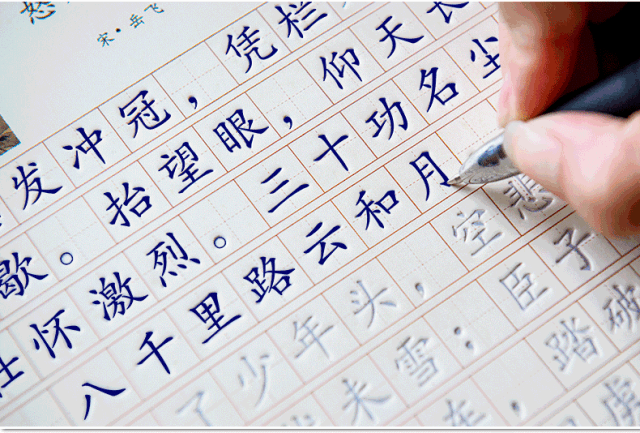 怒
宋·岳飞
发冲冠，凭栏
歇。抬望眼，仰天长
壮怀激烈。三十功名尘
八千里路云和月
了少年头，空悲
未雪；臣子
车，踏破